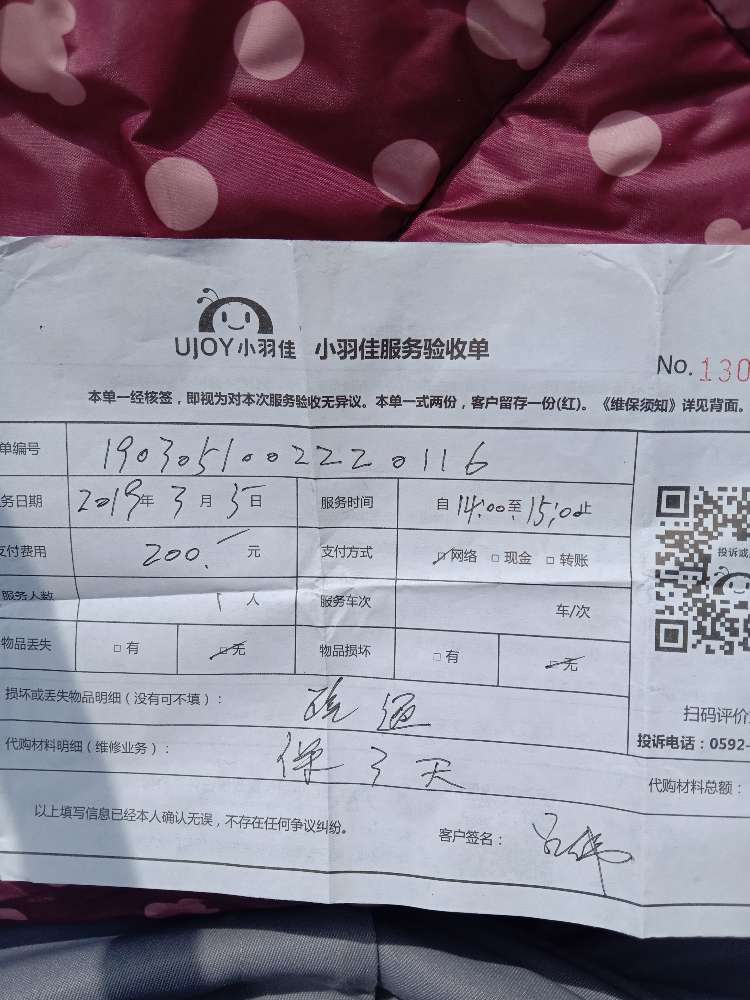 UJOY小羽佳 小羽佳服务验收单
No. 130
本单一经核签，即视为对本次服务验收无异议。本单一式两份，客户留存一份(红)。《维保须知》详见背面。
单编号 1903051002220116
务日期 2019年 3月 5日 服务时间 自 14:00至 15:00止
支付费用 200. 元 支付方式 □网络 □现金 □转账
服务人数 1 人 服务车次 车/次
物品丢失 □有 □无 物品损坏 □有 □无
投诉或
损坏或丢失物品明细（没有可不填）： 疏通
扫码评价
代购材料明细（维修业务）： 保3天
投诉电话：0592-
代购材料总额：
以上填写信息已经本人确认无误，不存在任何争议纠纷。
客户签名：